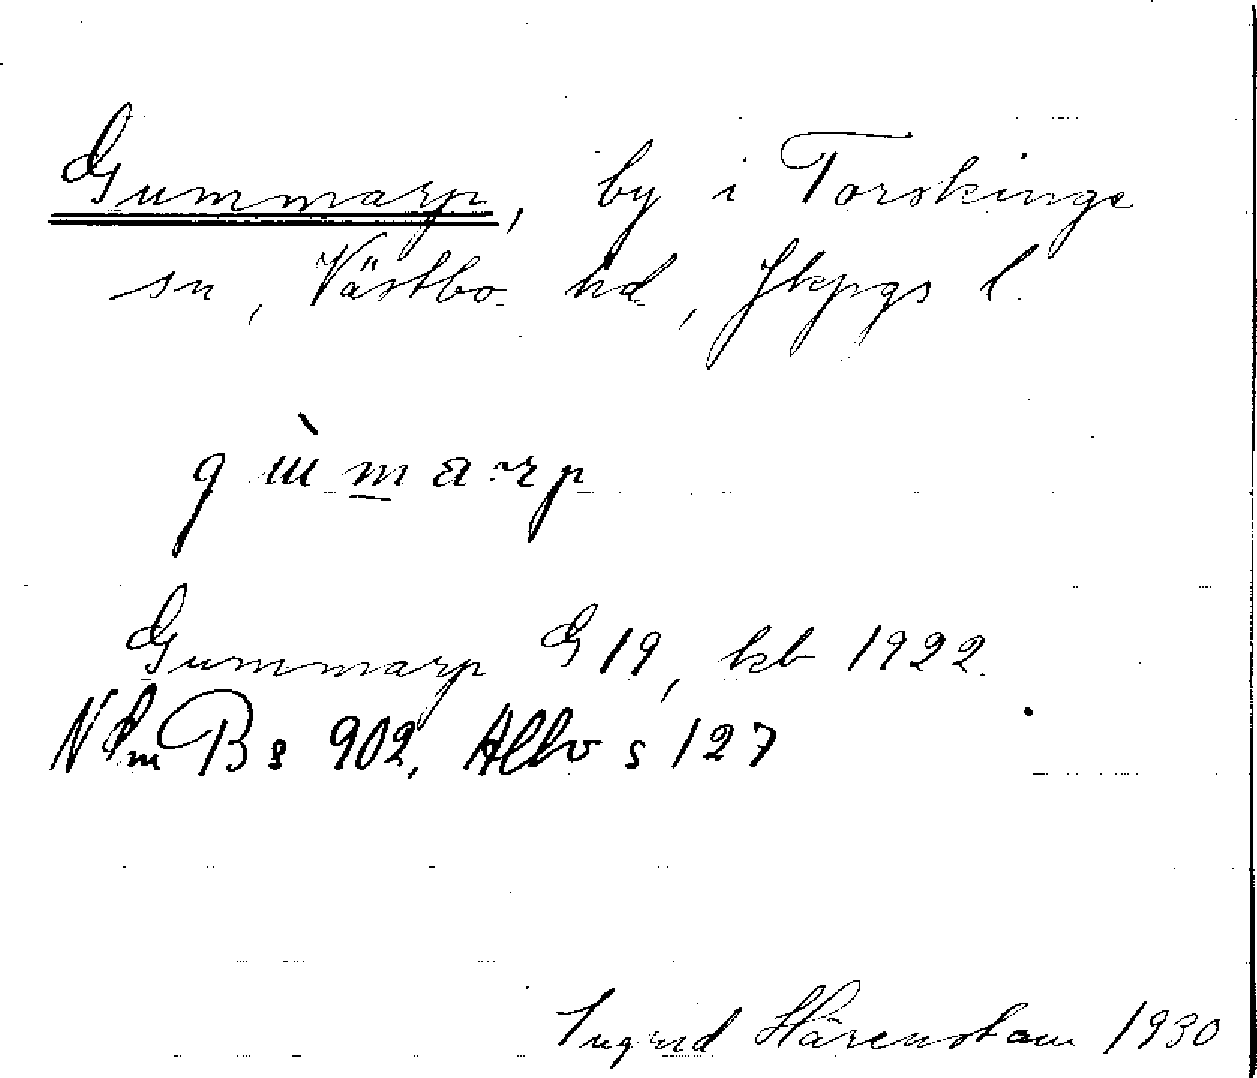 Gummarp, by i Torskinge
sn, Västbo hd, Jkpgs l.
gùmarp
Gummarp G 19, kb 1922.
s 902, Allbo s 127
Ingrid Härenstam 1930